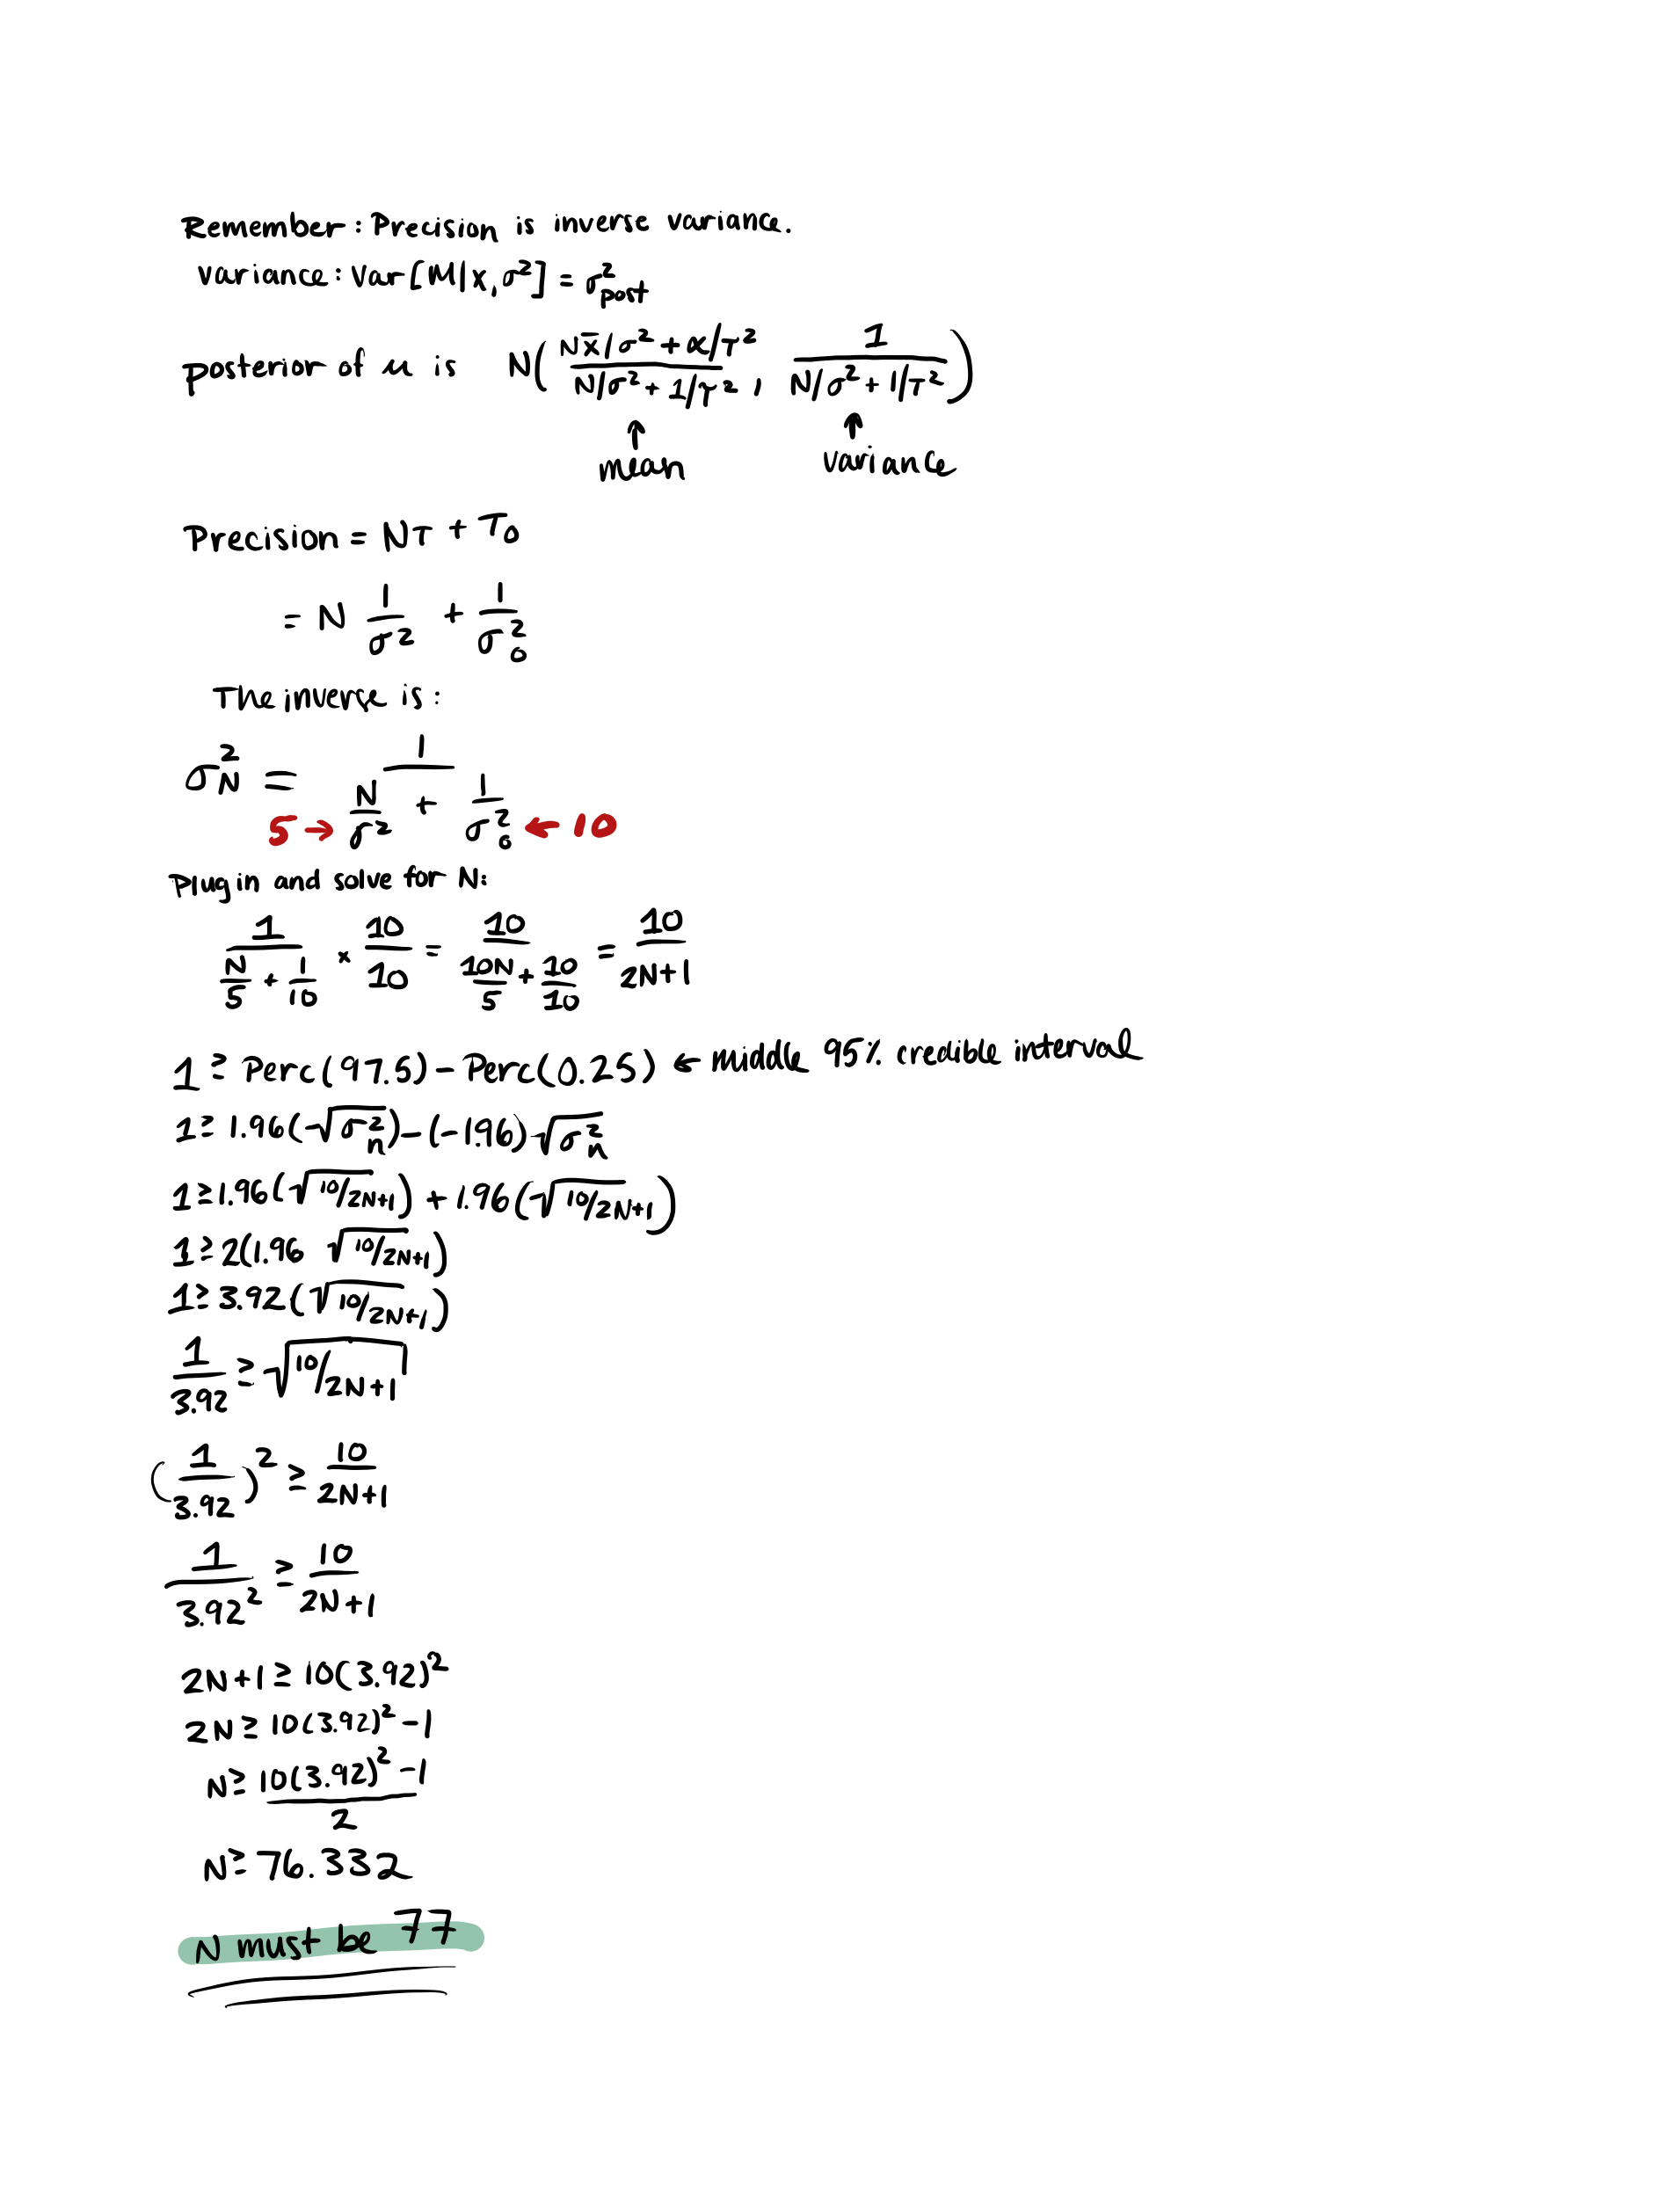 Remember: Precision is inverse variance.
variance: Var[M|x, σ²] = σ²post
posterior of μ is N( (Nx̄/σ² + α/τ²)/(N/σ² + 1/τ²), 1/(N/σ² + 1/τ²) )
↑ mean ↑ variance
Precision = Nτ + τ₀
= N 1/σ² + 1/σ₀²
The inverse is:
σ²N = 1/(N/σ² + 1/σ₀²)
5 → ← 10
Plug in and solve for N:
1/(N/5 + 1/10) × 10/10 = 10/(10N/5 + 10/10) = 10/(2N+1)
1 ≥ Perc(97.5) - Perc(0.25) ← middle 95% credible interval
1 ≥ 1.96(√σ²n) - (-1.96)√σ²n
1 ≥ 1.96(√10/2N+1) + 1.96(√10/2N+1)
1 ≥ 2(1.96 √10/2N+1)
1 ≥ 3.92(√10/2N+1)
1/3.92 ≥ √10/2N+1
(1/3.92)² ≥ 10/(2N+1)
1/3.92² ≥ 10/(2N+1)
2N+1 ≥ 10(3.92)²
2N ≥ 10(3.92)² - 1
N ≥ (10(3.92)² - 1)/2
N ≥ 76.332
N must be 77